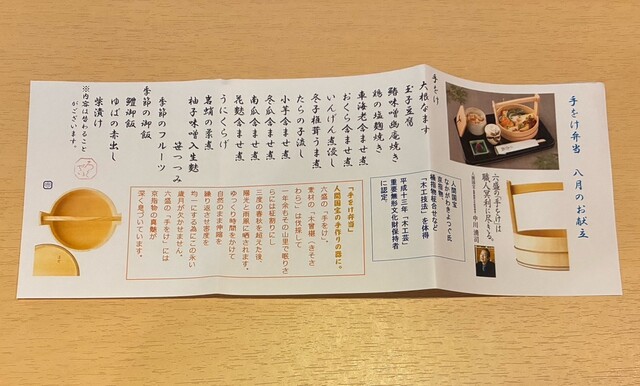 手をけ弁当 八月のお献立
六盛の手をけは
職人冥利に尽きる。
中川清司
人間国宝
なかがわきよつぐ氏
京指物
桶指物柾合せなど
「木工技法」を体得
平成十三年「木工芸」
重要無形文化財保持者
に認定。
手をけ
大根なます
玉子豆腐
鰆味噌幽庵焼き
鶏の塩麹焼き
車海老含ませ煮
おくら含ませ煮
いんげん煮浸し
冬子椎茸うま煮
たらの子流し
小芋含ませ煮
冬瓜含ませ煮
南瓜含ませ煮
花麩含ませ煮
うにくらげ
笹つつみ
柚子味噌入生麩
季節のフルーツ
季節の御飯
鱧御飯
ゆばの赤出し
柴漬け
※内容は替わること
がございます。
「手をけ弁当」
人間国宝の手作りの器に。
六盛の「手をけ」。
素材の「木曽椹(きそさ
わら)」は伐採して
一年余もその山里で眠りさ
らには柾割りにし
三度の春秋を超えた後、
陽光と雨風に晒されます。
ゆっくり時間をかけて
自然のまま伸縮を
繰り返させ密度を
均一にする為にこの永い
歳月が欠かせません。
六盛の「手をけ」には
京指物の真髄が
深く息づいています。